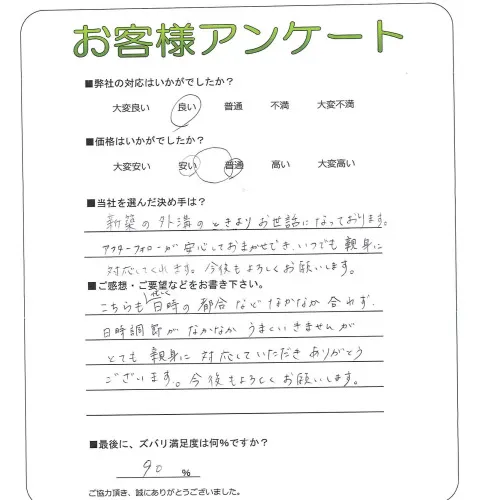 お客様アンケート
■弊社の対応はいかがでしたか？
大変良い 良い 普通 不満 大変不満
■価格はいかがでしたか？
大変安い 安い 普通 高い 大変高い
■当社を選んだ決め手は？
新築の外溝のときよりお世話になっております。
アフターフォローが安心しておまかせでき、いつでも親身に
対応してくれます。今後もよろしくお願いします。
■ご感想・ご要望などをお書き下さい。
こちらも 日時の都合などなかなか合わず、
日時調節がなかなかうまくいきませんが
とても親身に対応していただきありがとう
ございます。今後もよろしくお願いします。
■最後に、ズバリ満足度は何％ですか？
90 ％
ご協力頂き、誠にありがとうございました。